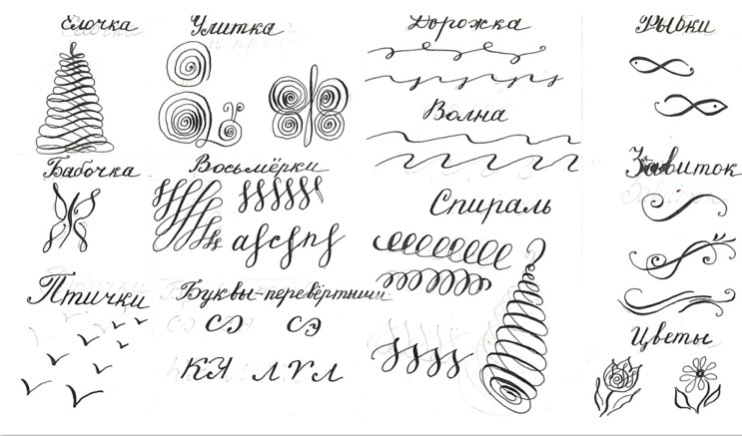 Ёлочка
Улитка
Дорожка
Рыбки
Волна
Бабочка
Восьмёрки
Завиток
Спираль
Птички
Буквы-перевёртыши
Цветы